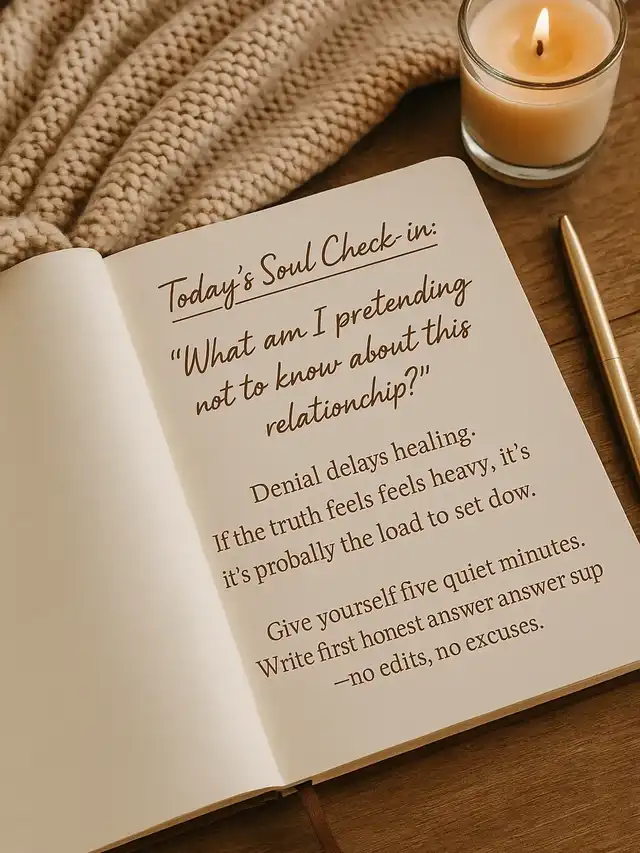 Today's Soul Check-in:
"What am I pretending
not to know about this
relationchip?"
Denial delays healing.
If the truth feels feels heavy, it's
it's probally the load to set dow.
Give yourself five quiet minutes.
Write first honest answer answer sup
—no edits, no excuses.